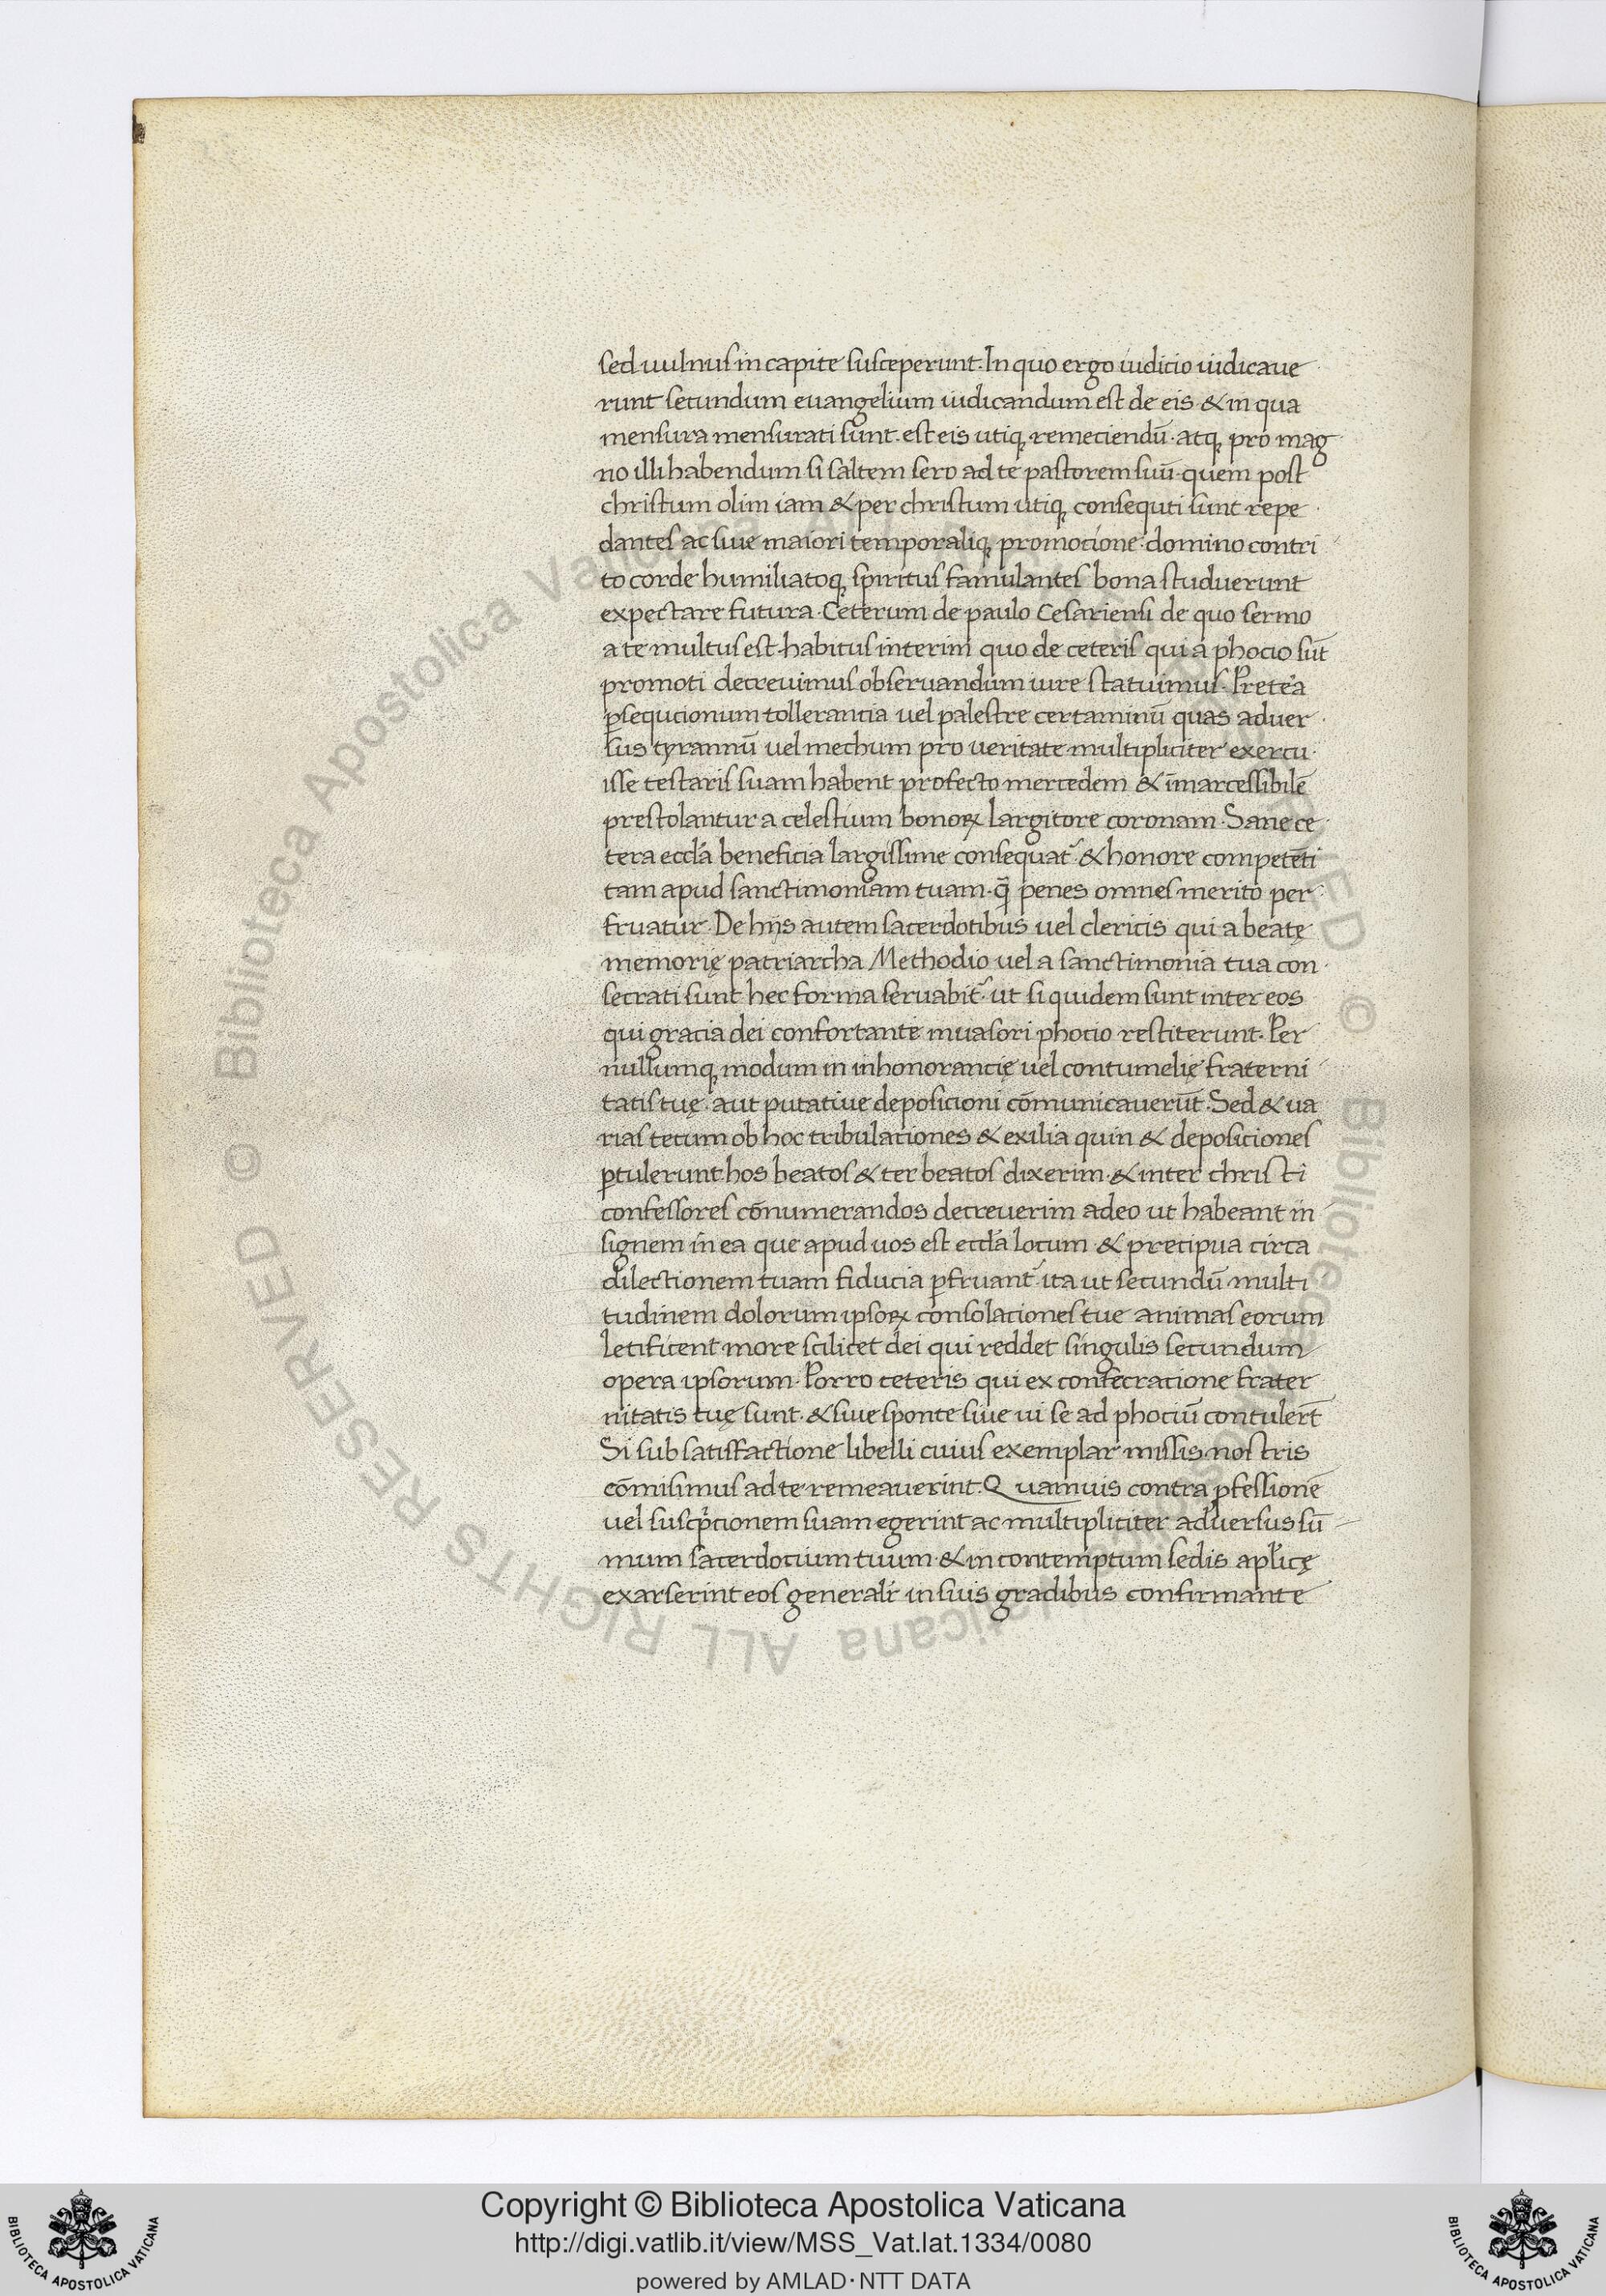 sed uulnus in capite susceperunt. In quo ergo iudicio iudicaue
runt secundum euangelium iudicandum est de eis· & in qua
mensura mensurati sunt· est eis utiq; remeciendū· atq; pro mag
no illi habendum si saltem sero ad te pastorem suū· quem post
christum olim iam & per christum utiq; consequti sunt repe
dantes ac siue maiori temporaliq; promocione· domino contri
to corde humiliatoq; spiritus famulantes bona studuerunt
expectare futura· Ceterum de paulo Cesariensi de quo sermo
a te multus est habitus interim quo de ceteris qui a phocio sūt
promoti decreuimus obseruandum iure statuimus· Preteˀa
ꝑsequcionum tollerancia uel palestre certaminū quas aduer
sus tyrannū uel mechum pro ueritate multipliciter exercu
isse testaris suam habent profecto mercedem & īmarcessibilē
prestolantur a celestium bonoꝝ largitore coronam· Sane ce
tera eccl̄a beneficia largissime consequat᷑ & honore competēti
tam apud sanctimoniam tuam· q̄ penes omnes merito per
fruatur· De hijs autem sacerdotibus uel clericis qui a beatę
memorię patriarcha Methodio uel a sanctimonia tua con
secrati sunt hec forma seruabit᷑ ut si quidem sunt inter eos
qui gracia dei confortante inuasori phocio restiterunt· Per
nullumq; modum in inhonorancię uel contumelię fraterni
tatis tuę· aut putatiue deposicioni cōmunicauerūt· Sed & ua
rias tecum ob hoc tribulationes & exilia quin & deposiciones
ꝑtulerunt hos beatos & ter beatos dixerim· & inter christi
confessores cōnumerandos decreuerim adeo ut habeant in
signem in ea que apud uos est eccl̄a locum· & precipua circa
dilectionem tuam fiducia ꝑfruant᷑ ita ut secundū multi
tudinem dolorum ipsoꝝ consolaciones tue animas eorum
letificent more scilicet dei qui reddet singulis secundum
opera ipsorum· Porro ceteris qui ex consecracione frater
nitatis tuę sunt· & siue sponte siue ui se ad phociū contulert̄
Si sub satisfactione libelli cuius exemplar missis nostris
cōmisimus ad te remeauerint. Quamuis contra ꝓfessionē
uel suscp̄tionem suam egerint ac multipliciter aduersus sū
mum sacerdocium tuum· & in contemptum sedis apl̄icę
exarserint eos generalr̄ in suis gradibus confirmante
Copyright © Biblioteca Apostolica Vaticana
http://digi.vatlib.it/view/MSS_Vat.lat.1334/0080
powered by AMLAD·NTT DATA
BIBLIOTECA APOSTOLICA VATICANA
BIBLIOTECA APOSTOLICA VATICANA
© Biblioteca Apostolica Vaticana ALL RIGHTS RESERVED © Biblioteca Apostolica Vaticana ALL RIGHTS RESERVED